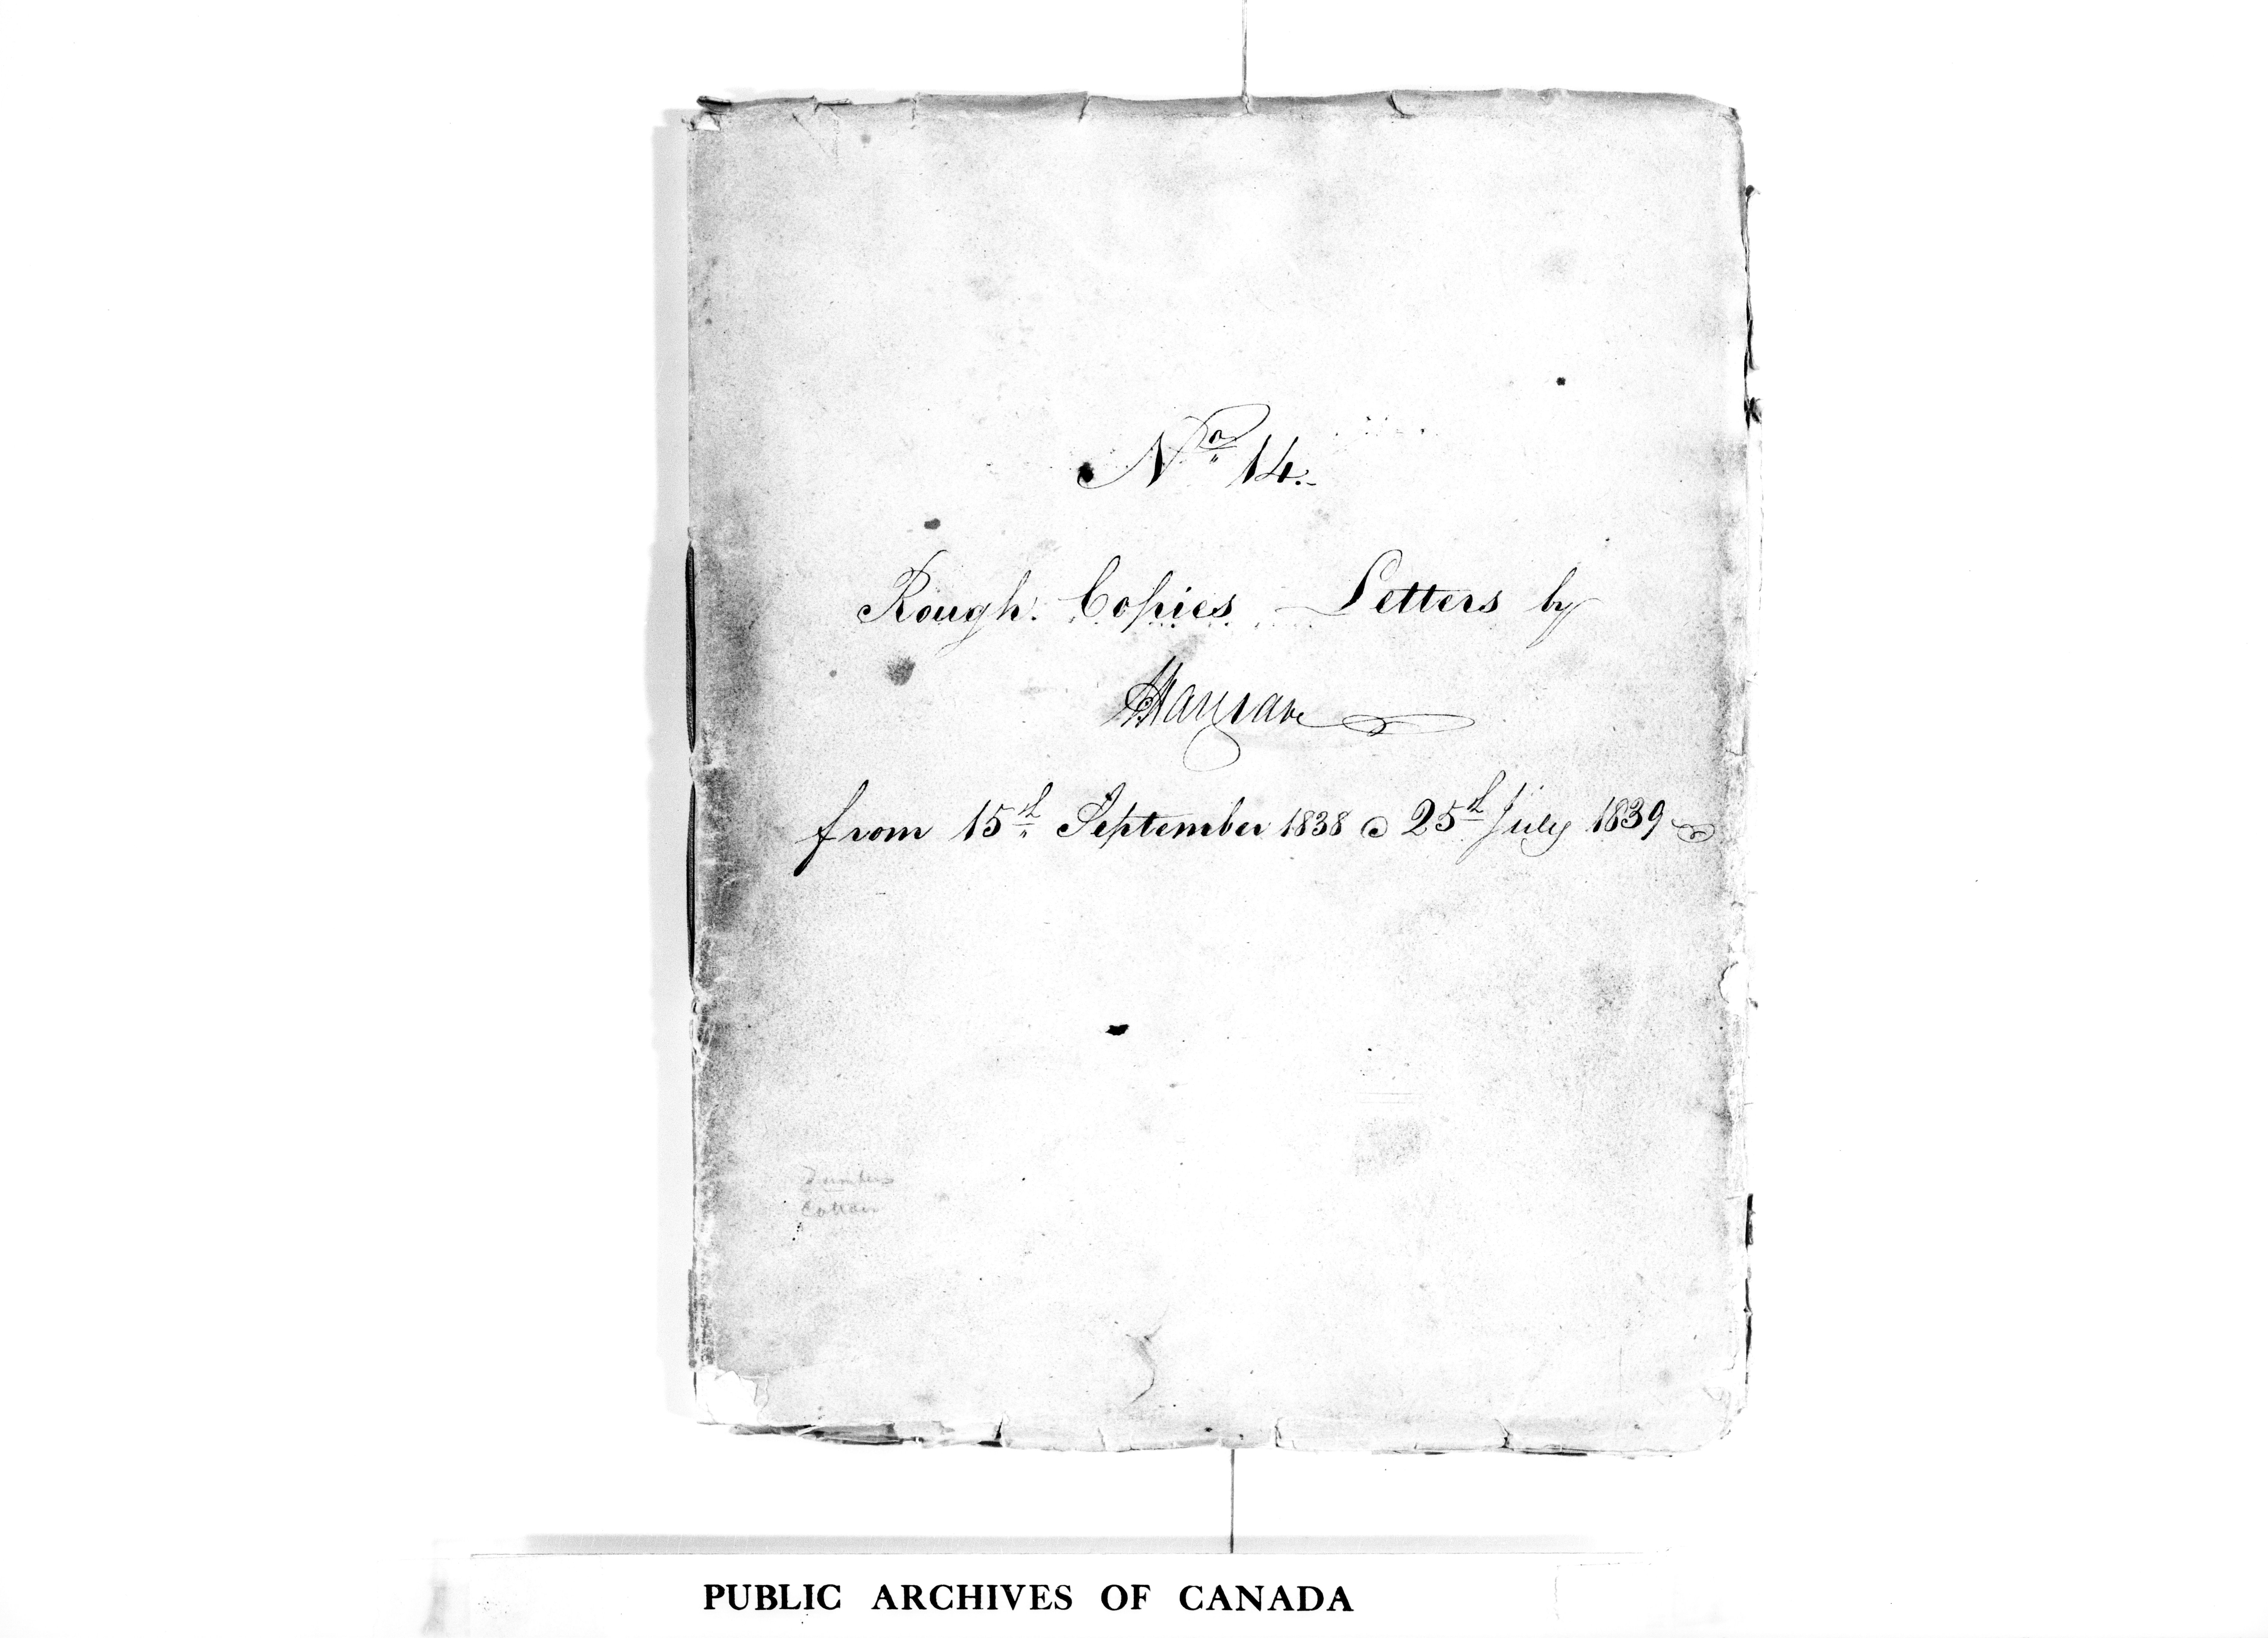 No 14.
Rough Copies Letters by
JHargrave
from 15th September 1838 @ 25th July 1839
PUBLIC ARCHIVES OF CANADA